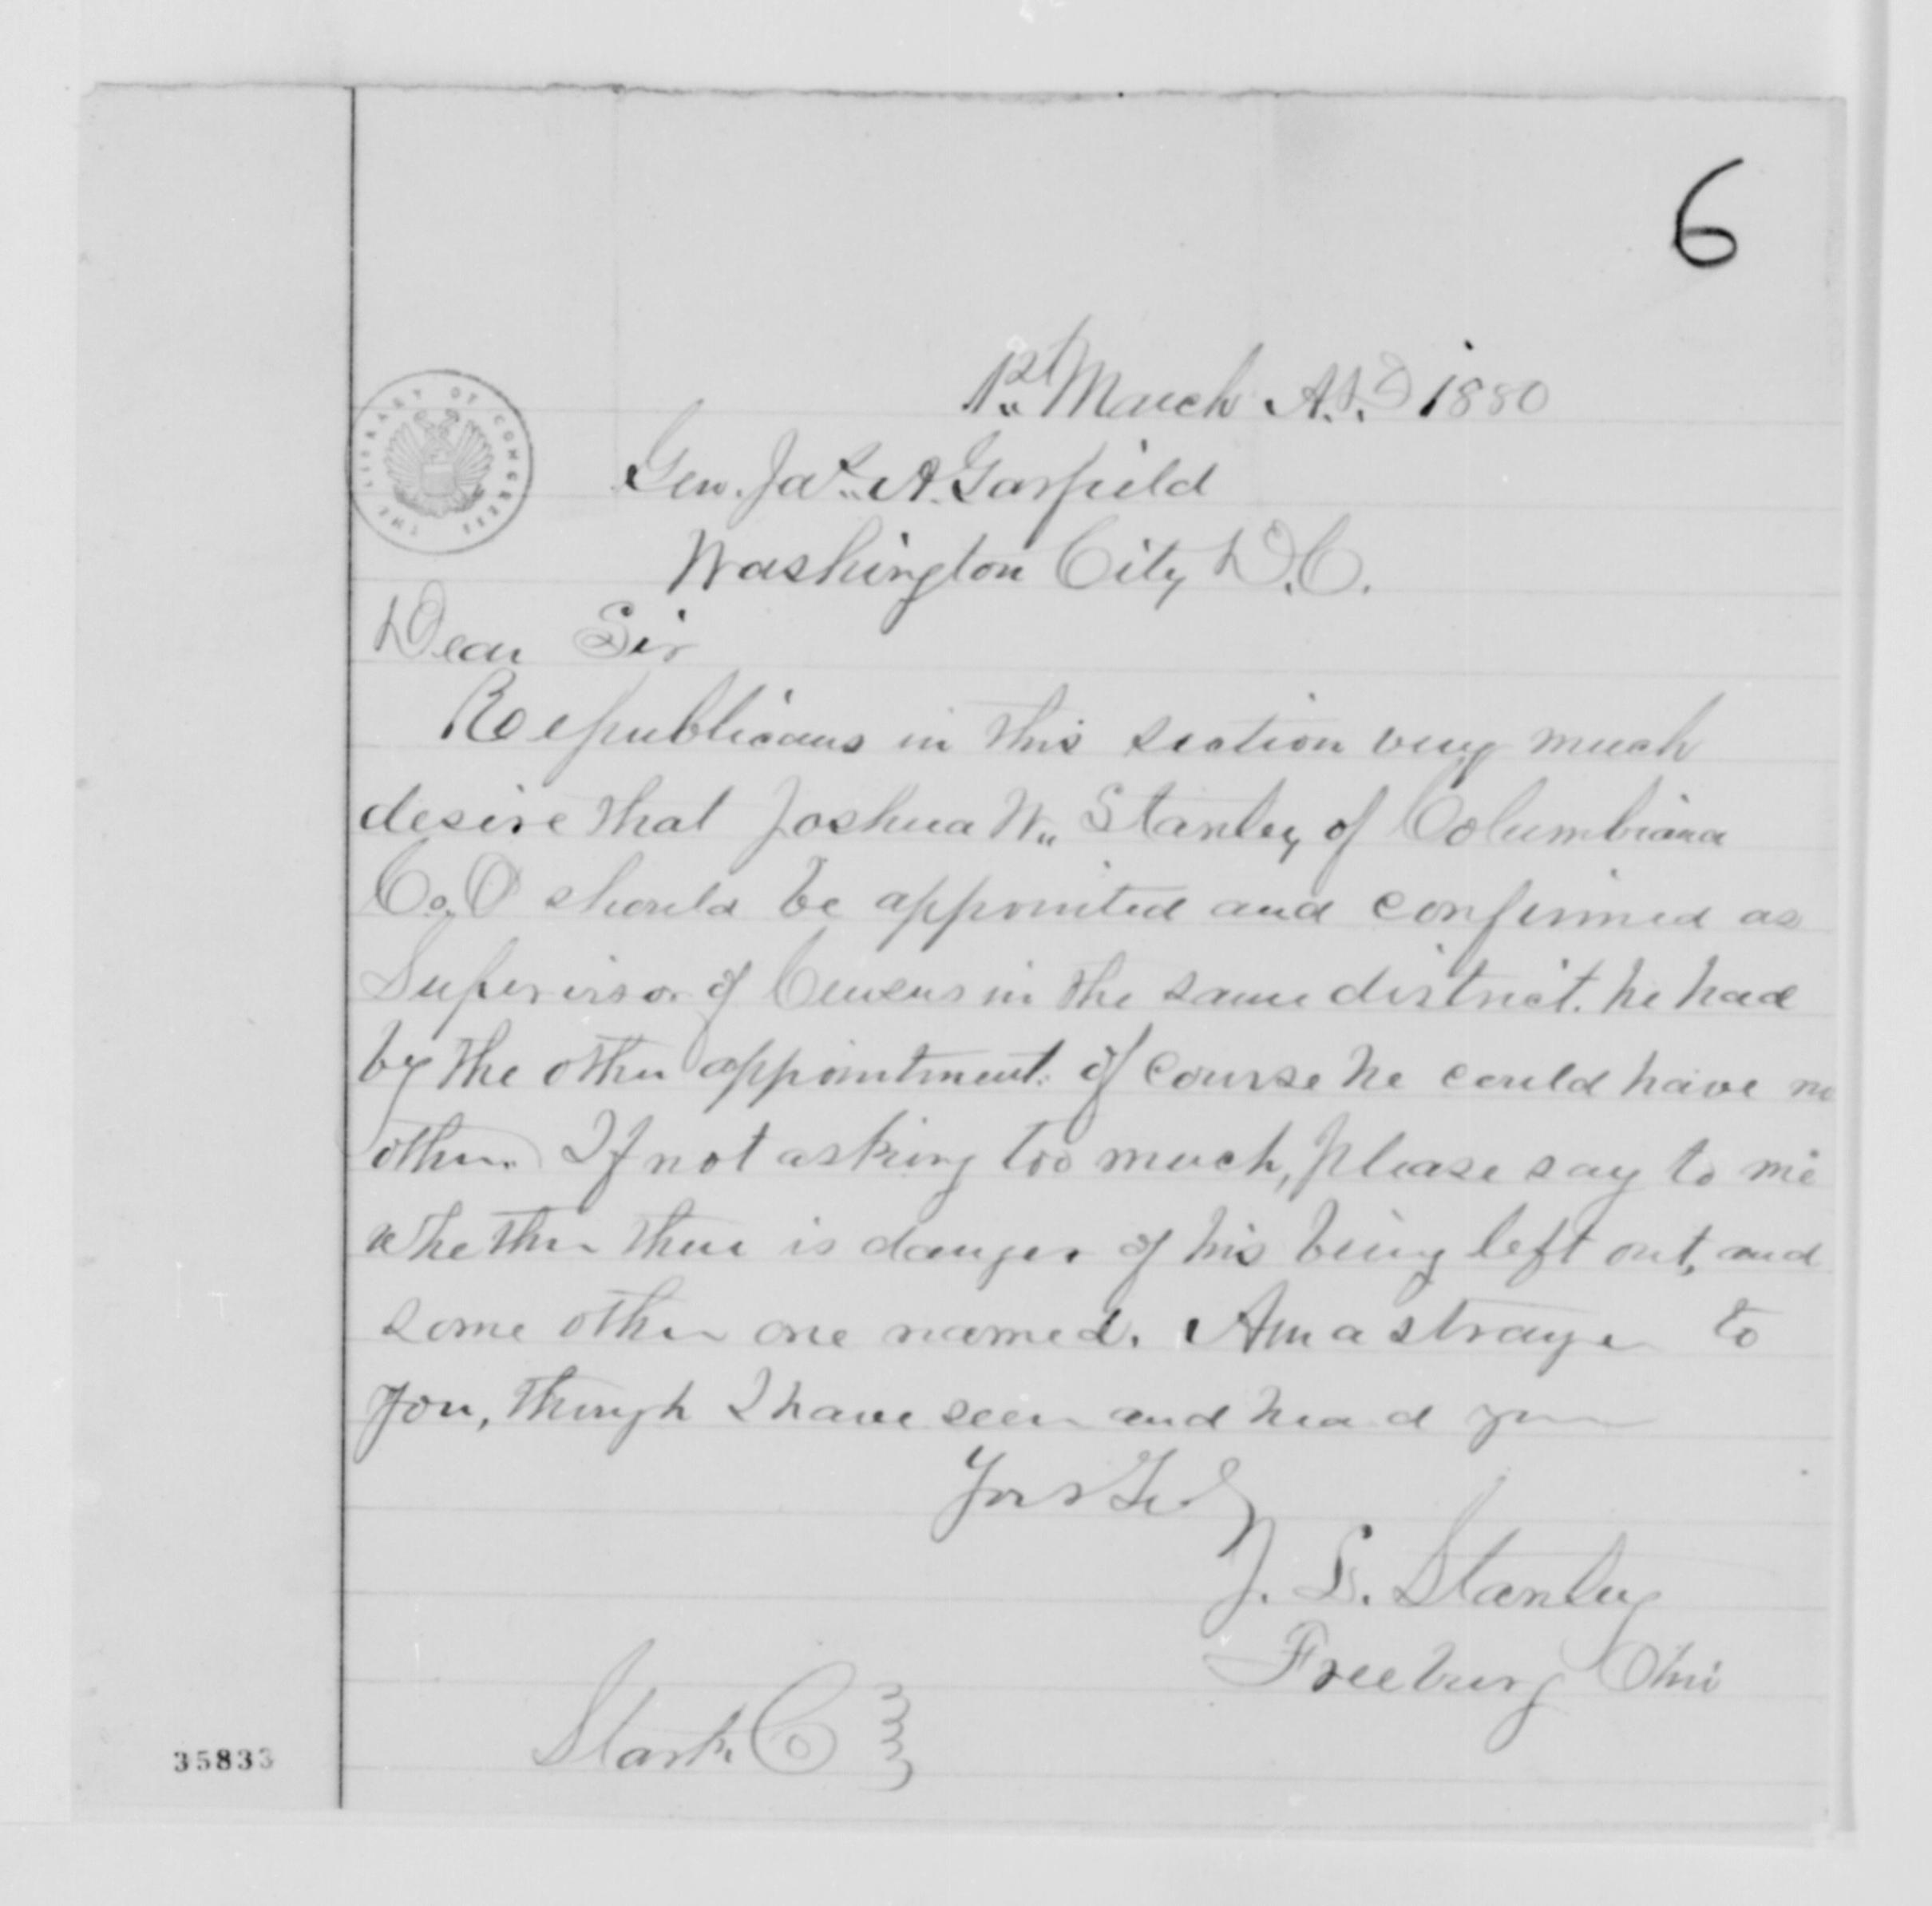 6
1st March A.D. 1880
Gen. Jas. A. Garfield
Washington City D.C.
THE LIBRARY OF CONGRESS
Dear Sir
Republicans in this section very much
desire that Joshua W. Stanley of Columbiana
Co. O should be appointed and confirmed as
Supervisor of Census in the same district. he had
by the other appointment. of course he could have no
other. If not asking too much, please say to me
whether there is danger of his being left out, and
some other one named. Am a stranger to
you, though I have seen and heard you
Yours
J. S. Stanley
Freeburg Ohio
Stark Co
35833